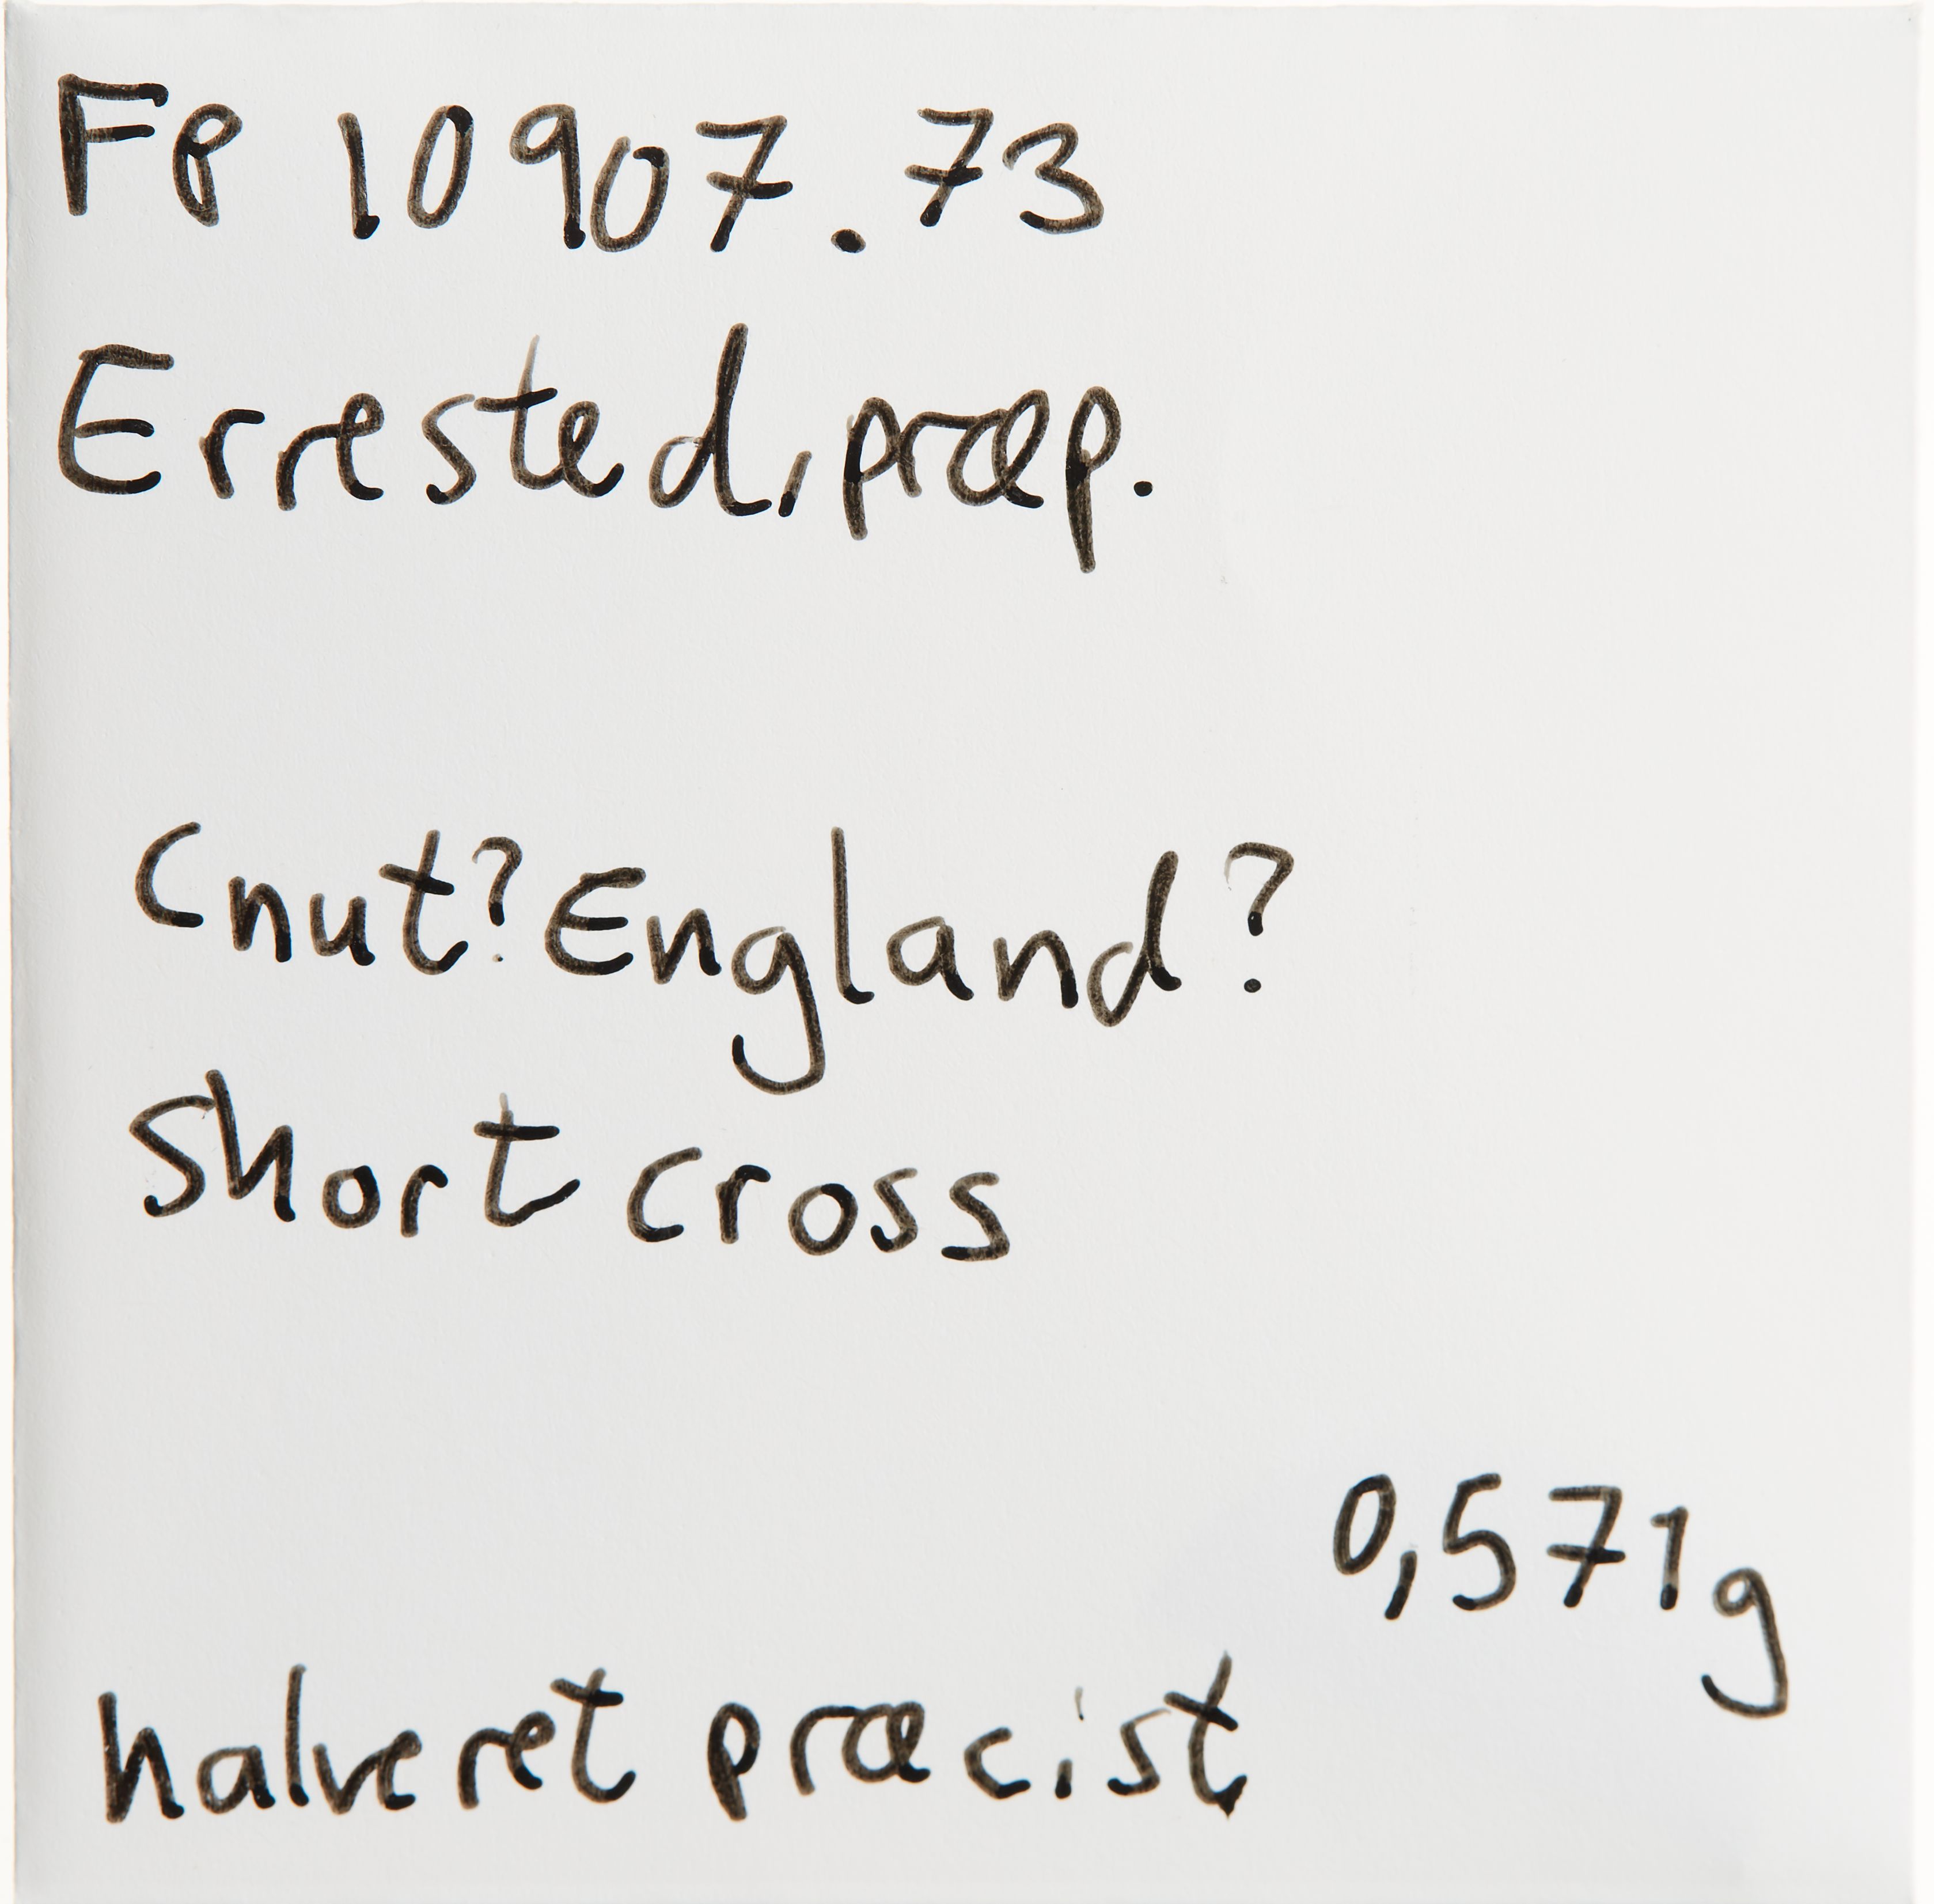 FP 10907.73
Errested, præp.
Cnut? England?
Short cross
0,571g
halveret præcist